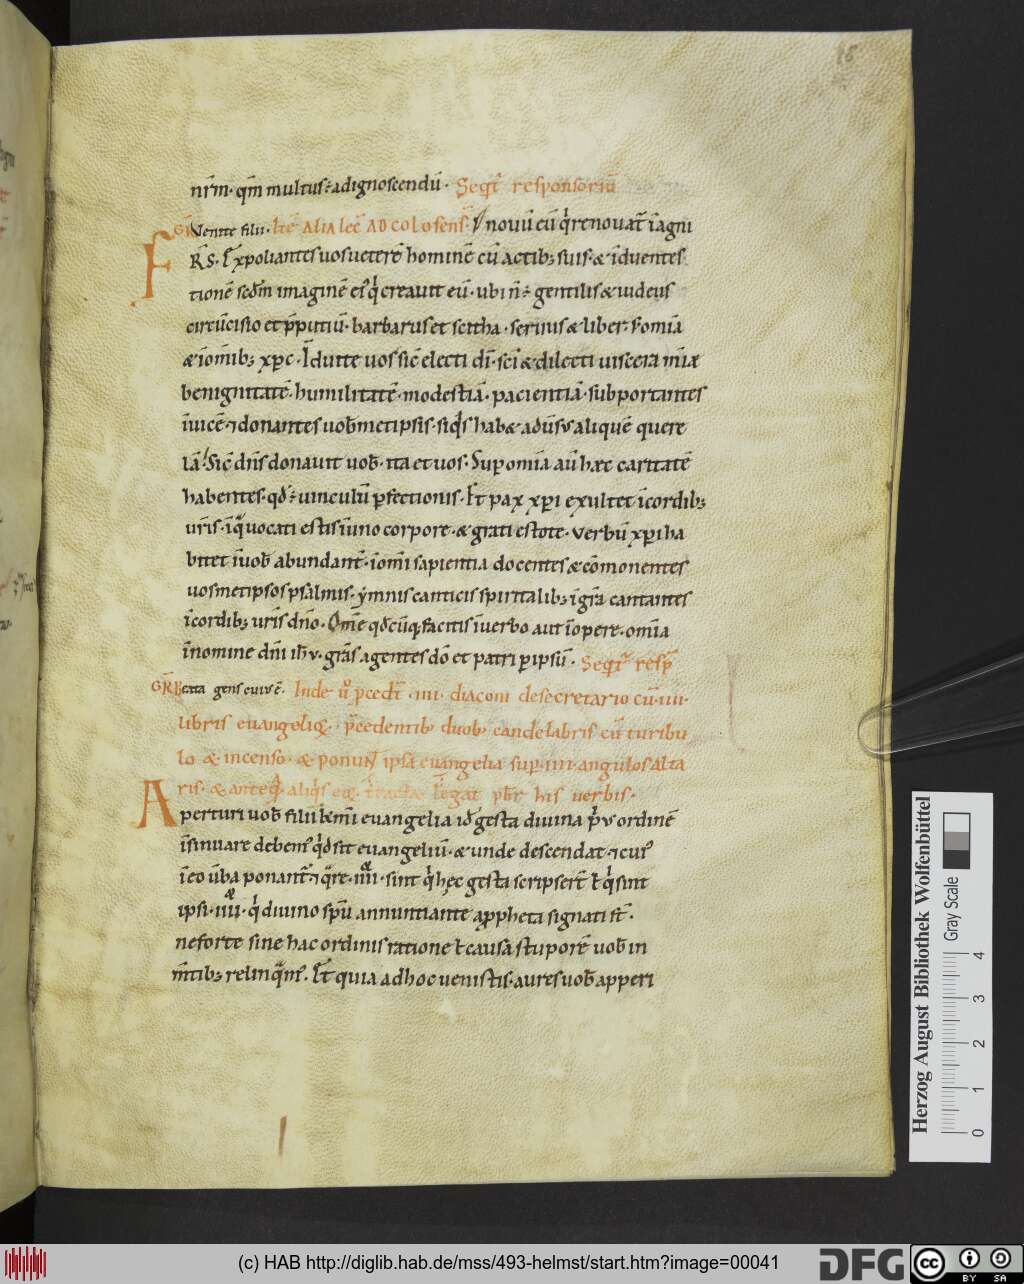 15
nr̄m · qm̄ multus ē adignoscendū · Seqt̄ responsoriū
GR̄ Venite filii · Itē Alia lec̄ AD colosens̄ · novū eū q̇ renovat̄ īagni
FRS̄ · Expoliantes vos veterē hominē cū actib; suis · & īduentes
tionē scdm̄ imaginē ei' q̇ creavit eū · ubi n̄ ē gentilis & iudeus
circūcisio et p̄putiū · barbarus et scitha · servus & liber · s; omīa
& īomīb; xp̄c · Iduite vos sic̄ electi dī · sc̄i & dilecti viscera mīæ
benignitatē · humilitatē · modestiā · pacientiā · subportantes
īvicē · ⁊ donantes vob̄ metipsis · siq̇s hab& adūsus aliquē quere
lā · Sic̄ dn̄s donavit vob̄ · ita et vos · Sup omīa aū hæc caritatē
habentes · qd̄ ē vinculū p̄fectionis · Et pax xp̄i exultet īcordib;
vr̄is · īq̄ vocati estis īuno corpore · & grati estote · verbū xp̄i ha
bitet īvob̄ abundant̄ · īomī sapientia docentes & cōmonentes
vosmetipsos psalmis · ẏmnis canticis spiritalib; īgr̄a cantantes
īcordib; vr̄is dn̄o · Om̄e qdcūq; facitis īverbo aut īopere · omīa
īnomine dn̄i ih̄v · gr̄as agentes dō et patri p ipsū · Seqt̄ resp̄
GR̄ Beata gens cuius ē · Inde v̄ p̄cedt̄ · iiii · diaconi desecretario cū · iiii ·
libris evangelioꝝ · p̄cedentib; duob; candelabris cū turibu
lo & incenso · & ponunt ipsa evangelia sup · iiii · angulos alta
ris · & anteq̄ aliq̇s eoꝝ tractæ legat pb̄r his verbis ·
Aperturi vob̄ filii kmī evangelia id ē gesta divina p̄us ordinē
īsinuare debem' qḋ sit evangeliū · & unde descendat · ⁊ cui'
īeo v̄ba ponant̄ · ⁊ q̄re · iiii · sint q̇ hęc gesta scripser̄t ł q̇ sint
ipsi · iiii · q̇ divino spū annuntiante a ppheta signati st̄ ·
neforte sine hac ordinis ratione ł causa stuporē vob̄ in
m̄tib; relinq̄m' · Et quia adhoc venistis · aures vob̄ apperi
Herzog August Bibliothek Wolfenbüttel
Gray Scale
0 1 2 3 4
(c) HAB http://diglib.hab.de/mss/493-helmst/start.htm?image=00041
DFG
cc BY SA